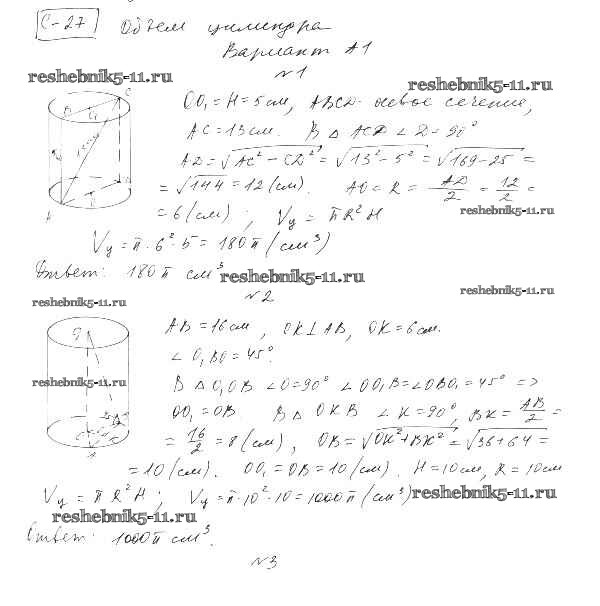 С-27 Объем цилиндра
Вариант А1
№1
reshebnik5-11.ru
reshebnik5-11.ru
OO₁ = H = 5 см, ABCD - осевое сечение,
AC = 13 см. В △ ACD ∠D = 90°
AD = √AC² - CD² = √13² - 5² = √169 - 25 =
= √144 = 12 (см). AO = R = AD/2 = 12/2 =
reshebnik5-11.ru
= 6 (см); Vц = πR²H
Vц = π · 6² · 5 = 180π (см³)
Ответ: 180π см³
reshebnik5-11.ru
reshebnik5-11.ru
reshebnik5-11.ru
№2
AB = 16 см, OK ⊥ AB, OK = 6 см.
∠ O₁BO = 45°.
reshebnik5-11.ru
В △ O₁OB ∠O = 90° ∠OO₁B = ∠OBO₁ = 45° =>
OO₁ = OB. В △ OKB ∠K = 90°, BK = AB/2 =
= 16/2 = 8 (см), OB = √OK² + BK² = √36 + 64 =
= 10 (см). OO₁ = OB = 10 (см). H = 10 см, R = 10 см
Vц = πR²H; Vц = π · 10² · 10 = 1000π (см³)
reshebnik5-11.ru
reshebnik5-11.ru
Ответ: 1000π см³.
№3